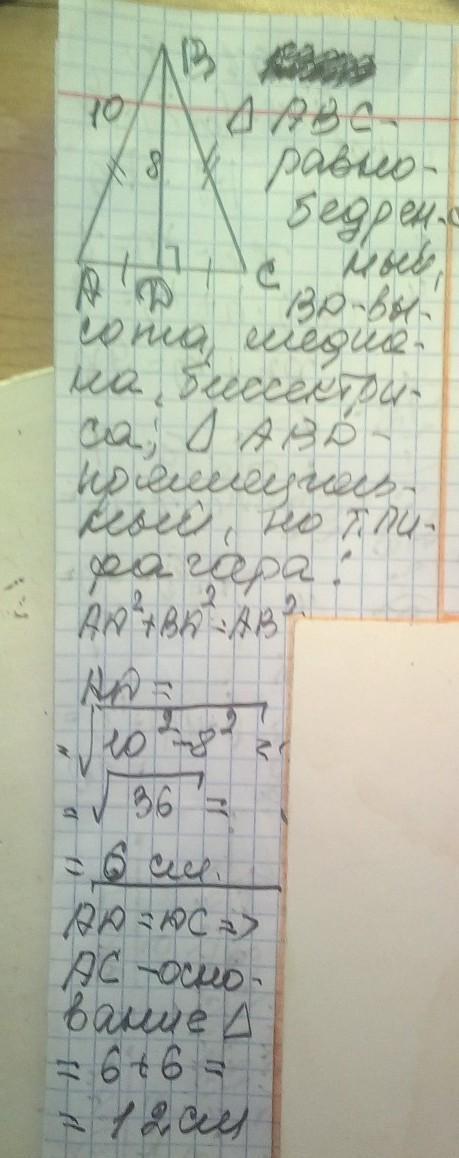 B
10
8
A D C
Δ ABC -
равно-
бедрен-
ный,
BD - вы-
сота, медиа-
на, биссектри-
са; Δ ABD -
прямоуголь-
ный, по т. Пи-
фагора:
AD² + BD² = AB²
AD =
= √10² - 8² =
= √36 =
= 6 см.
AD = DC =>
AC - осно-
вание Δ
= 6 + 6 =
= 12 см